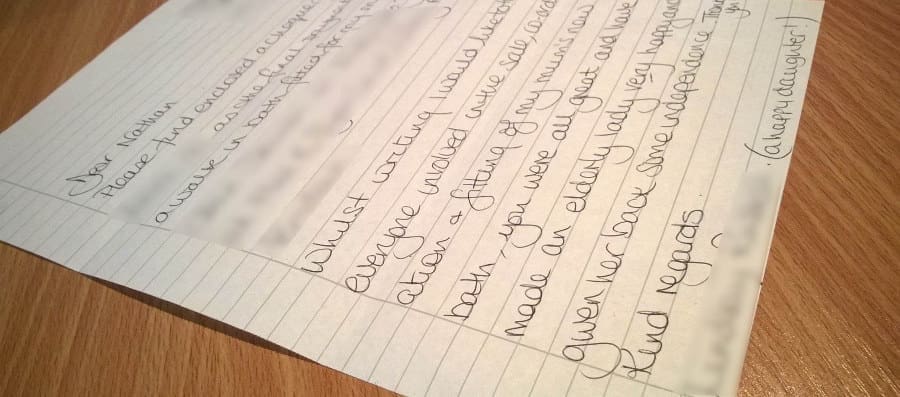 Dear Nathan
Please find enclosed a cheque
as the final
a walk in bath fitted for my
Whilst writing I would like
everyone involved in the sale, co-ord
ation & fitting of my mums new
bath, you were all great and have
made an elderly lady very happy and
given her back some independence Thank
you
Kind regards.
(a happy daughter!)